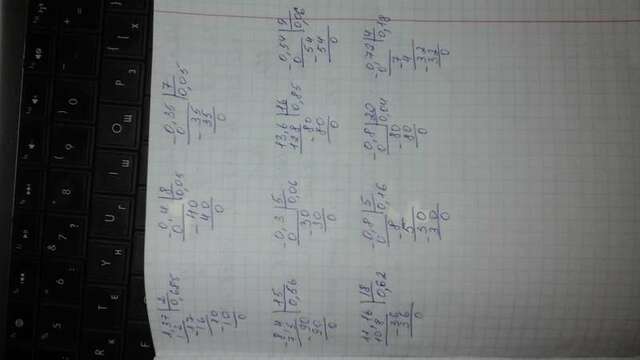 1,37 | 2
12 | 0,685
-17
16
-10
10
0
-0,4 | 8
0 | 0,05
-40
40
0
-0,35 | 7
0 | 0,05
-35
35
0
-8,4 | 15
75 | 0,56
-90
90
0
-0,3 | 5
0 | 0,06
-30
30
0
13,6 | 16
128 | 0,85
-80
80
0
-0,54 | 9
0 | 0,06
-54
54
0
11,16 | 18
108 | 0,62
-36
36
0
-0,8 | 5
0 | 0,16
-8
5
-30
30
0
-0,8 | 20
0 | 0,04
-80
80
0
-0,72 | 4
0 | 0,18
-7
4
-32
32
0